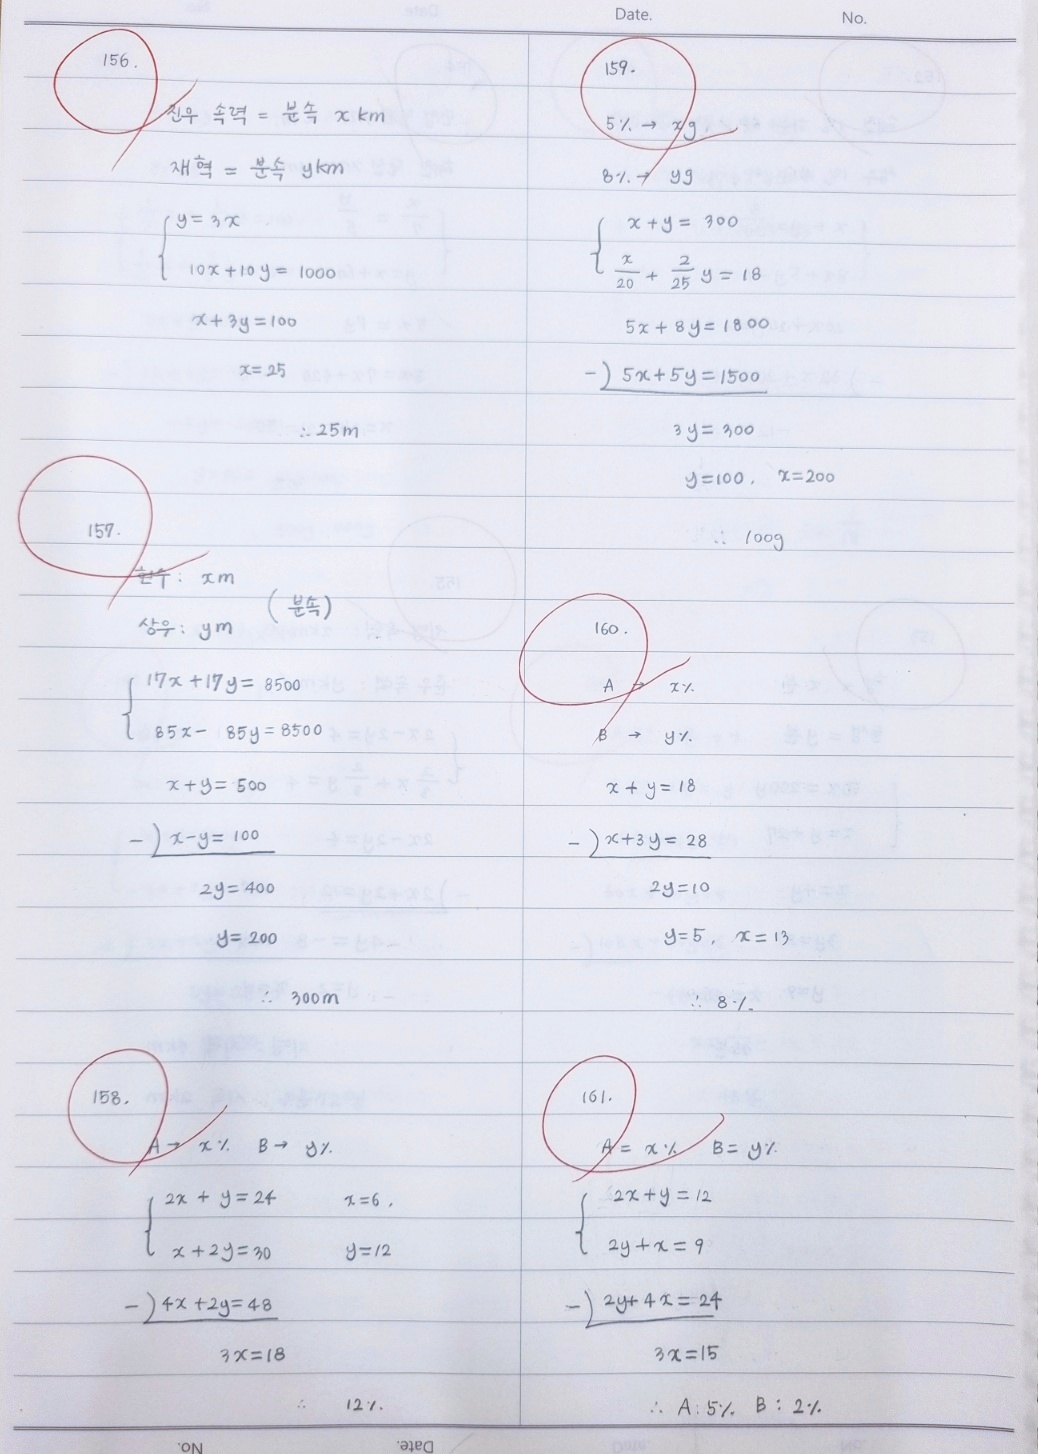 Date. No.
156.
진우 속력 = 분속 x km
재혁 = 분속 ykm
y = 3x
10x+10y = 1000
x+3y=100
x=25
∴ 25m
157.
현우: xm
(분속)
상우: ym
17x+17y= 8500
85x- 85y=8500
x+y= 500
-) x-y= 100
2y=400
y= 200
∴ 300m
158.
A→ x% B→ y%
2x + y=24 x=6,
x+2y=30 y=12
-) 4x+2y=48
3x=18
∴ 12%
159.
5% → xg
8% → yg
x+y= 300
x/20 + 2/25 y = 18
5x + 8y=1800
-) 5x+5y=1500
3y= 300
y=100, x=200
∴ 100g
160.
A → x%
B → y%
x + y= 18
-) x+3y= 28
2y=10
y=5, x=13
∴ 8%
161.
A= x% B= y%
2x+y= 12
2y+x= 9
-) 2y+4x=24
3x=15
∴ A:5% B:2%
No. Date.